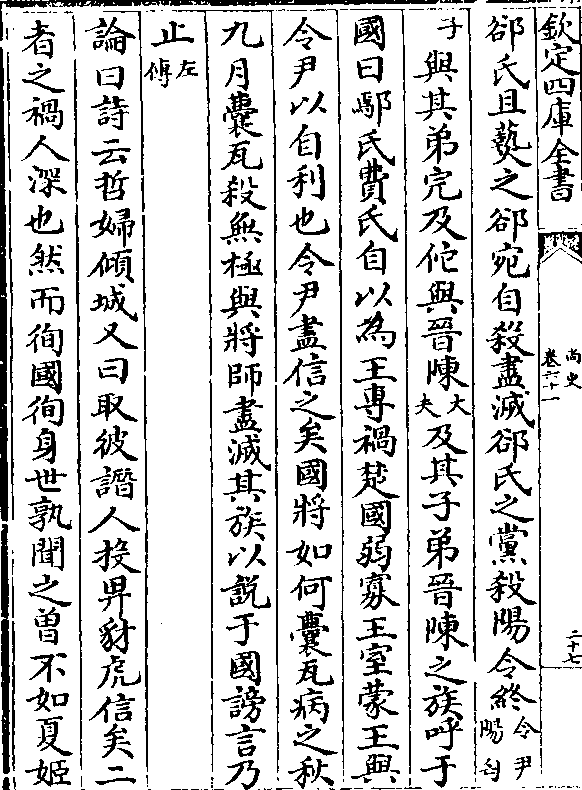 欽定四庫全書
尚史
卷六十一
二十七
郤氏且爇之郤宛自殺盡滅郤氏之黨殺陽令終令尹陽匄
子與其弟完及佗與晉陳大夫及其子弟晉陳之族呼于
國曰鄢氏費氏自以為王專禍楚國弱寡王室蒙王與
令尹以自利也令尹盡信之矣國將如何囊瓦病之秋
九月囊瓦殺無極與將師盡滅其族以説于國謗言乃
止左傳
論曰詩云哲婦傾城又曰取彼譖人投畀豺虎信矣二
者之禍人深也然而徇國徇身世孰聞之曽不如夏姬